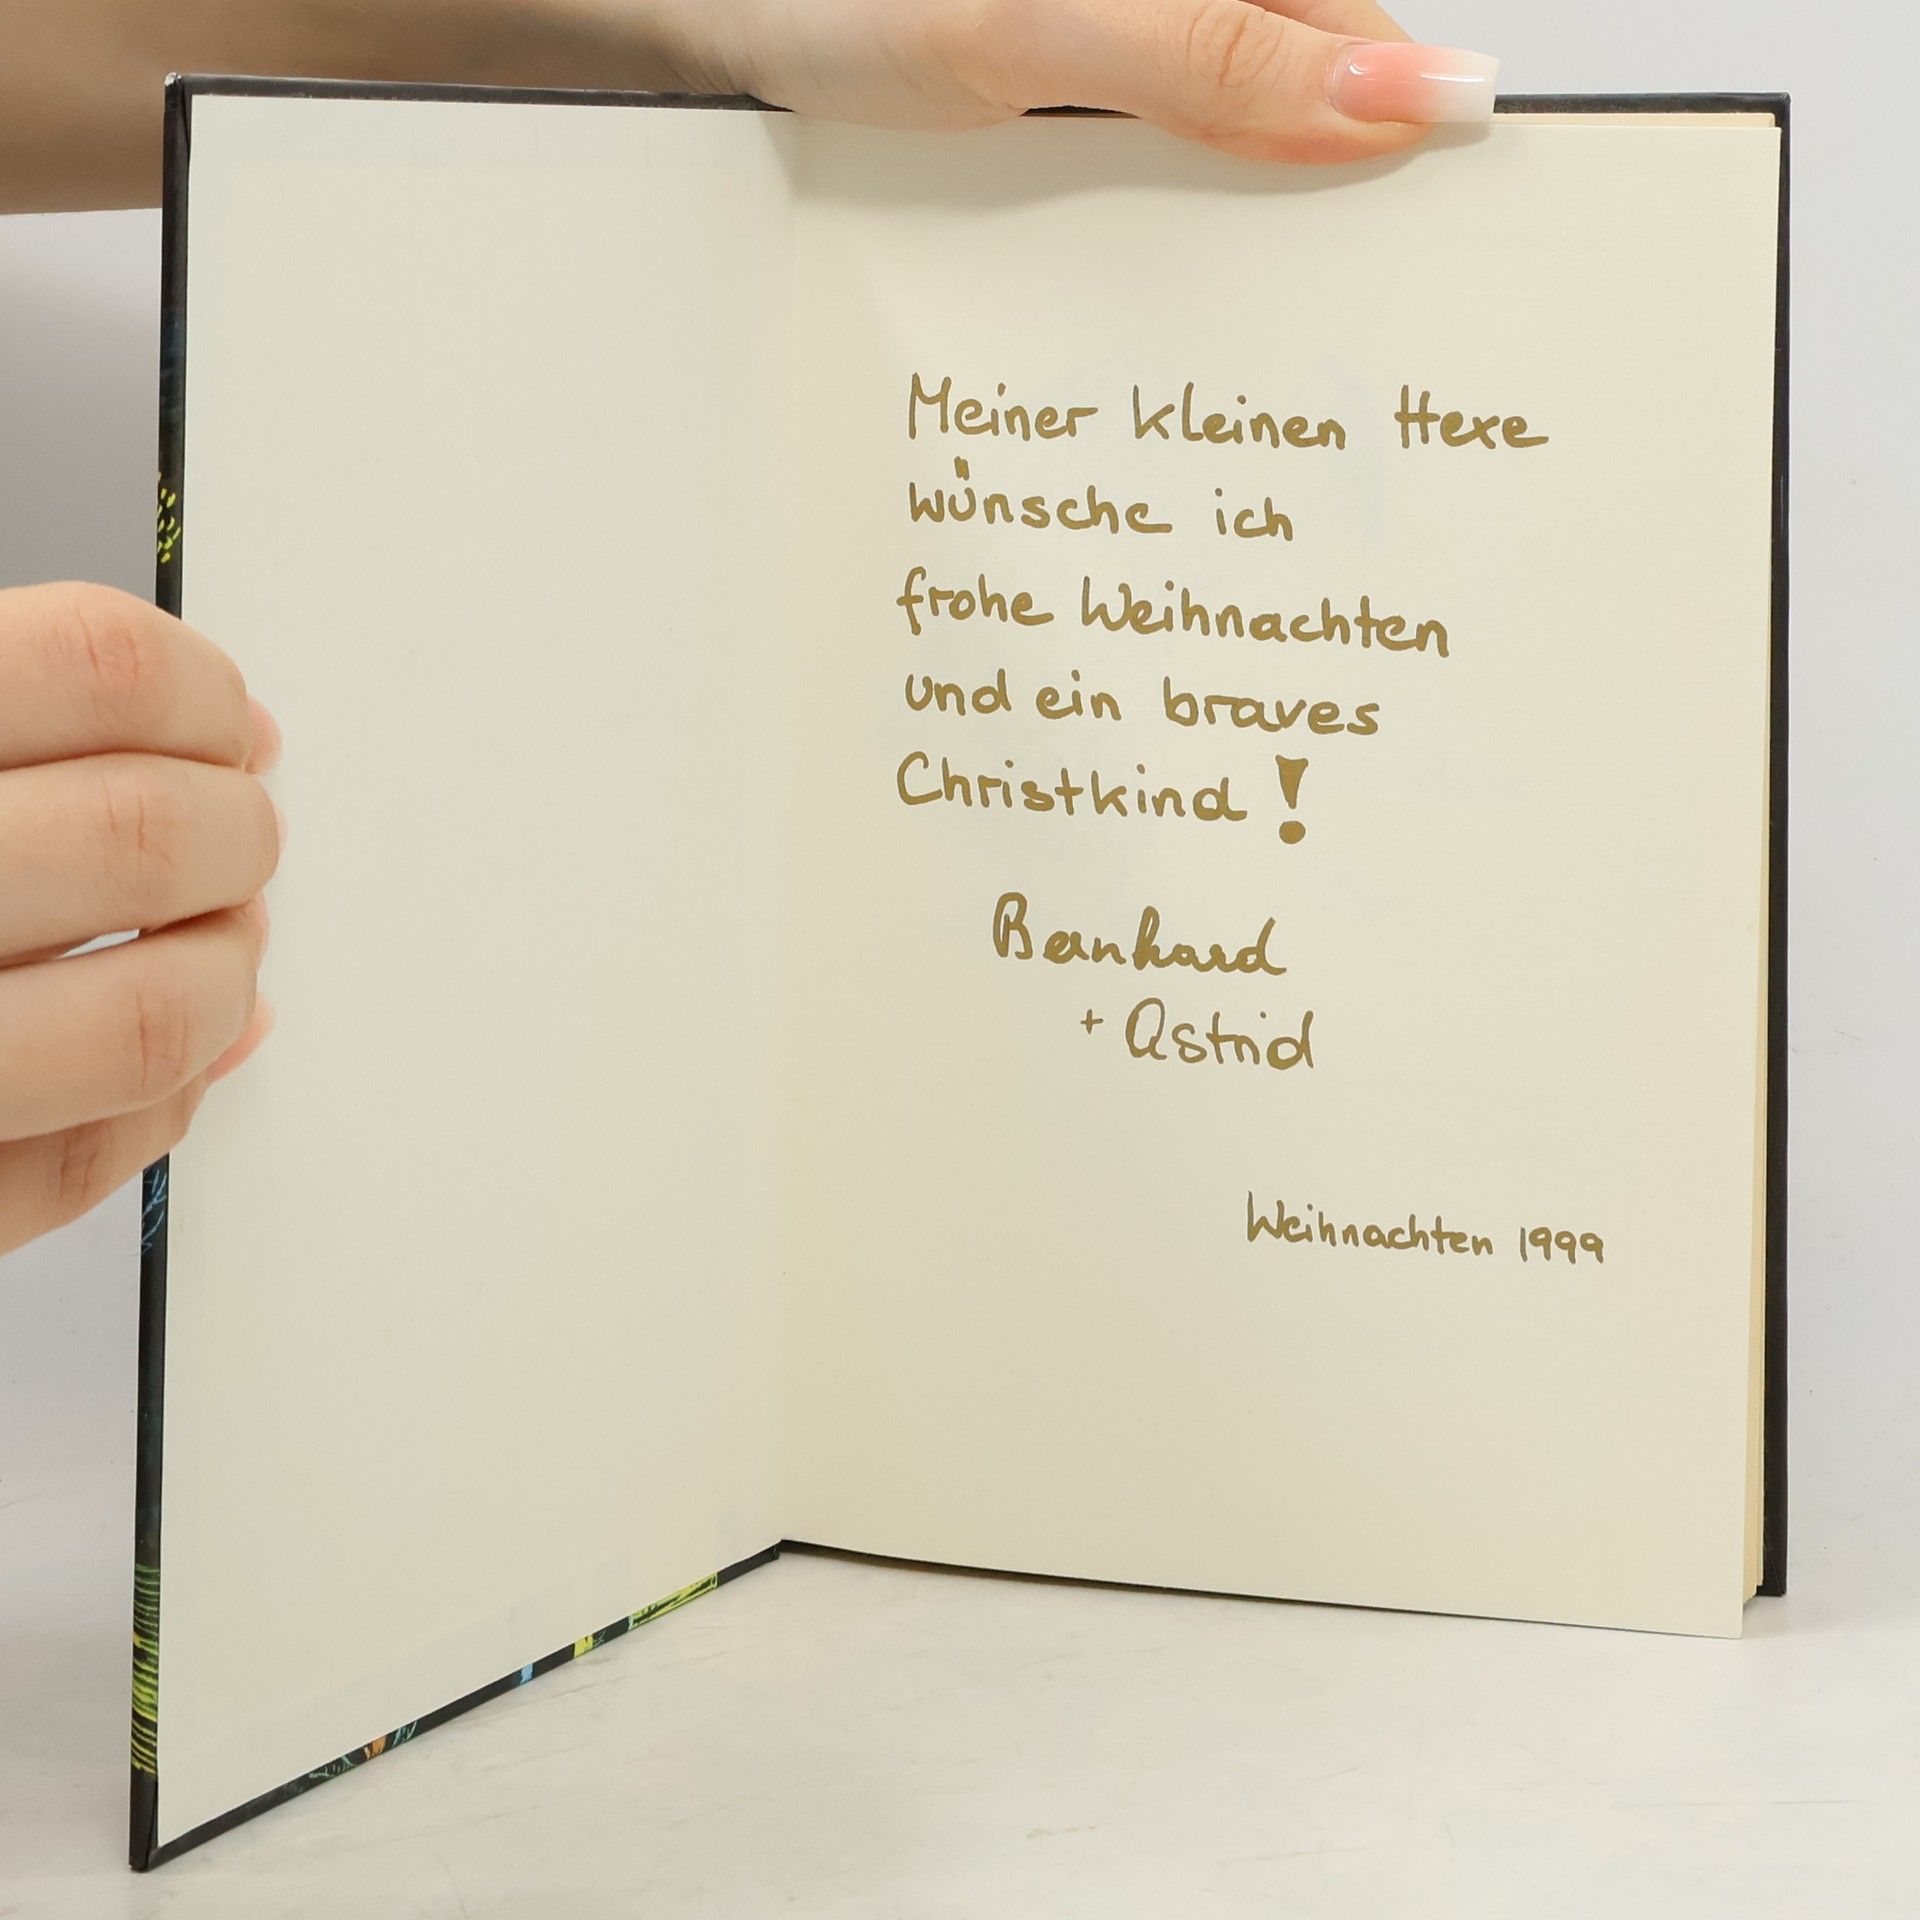 Meiner kleinen Hexe
wünsche ich
frohe Weihnachten
und ein braves
Christkind!
Bernhard
+ Astrid
Weihnachten 1999